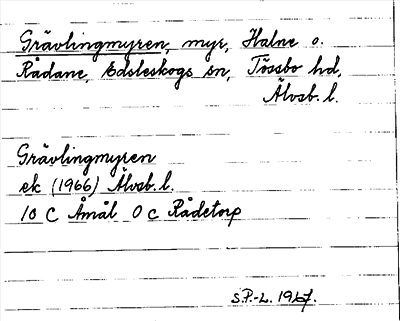 Grävlingmyren, myr, Halne o.
Rådane, Edsleskogs sn, Tössbo hd,
Älvsb. l.
Grävlingmyren
ek (1966) Älvsb. l.
10 C Åmål 0 c Rådetorp
S.P.-L. 1967.